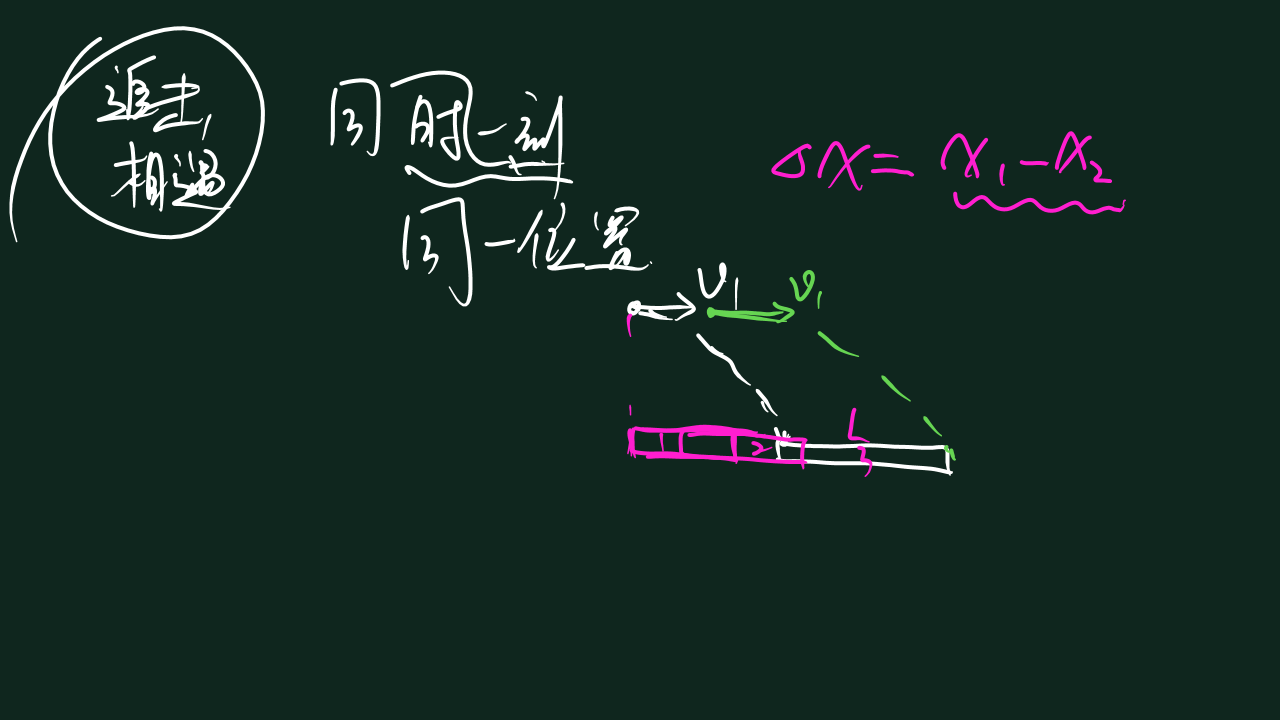 追击,
相遇
同时一刻
同一位置
Δx = x₁ - x₂
v₁
v₁
1
2
L
3